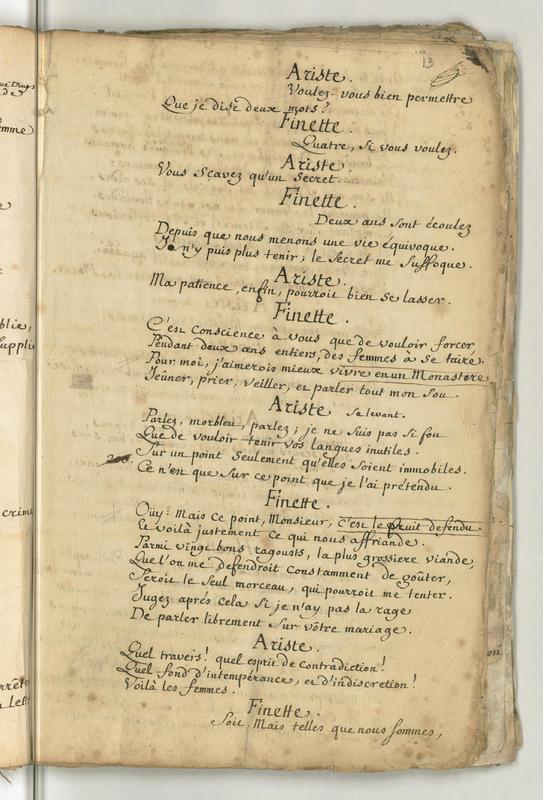 13
Ariste.
Voulez-vous bien permettre
Que je dise deux mots?
Finette.
Quatre, si vous voulez.
Ariste.
Vous scavez qu'un secret....
Finette.
Deux ans sont écoulez
Depuis que nous menons une vie équivoque.
Je n'y puis plus tenir; le secret me suffoque.
Ariste.
Ma patience, enfin, pourroit bien se lasser.
Finette.
C'est conscience à vous que de vouloir forcer
Pendant deux ans entiers, des femmes à se taire.
Pour moi, j'aimerois mieux vivre en un Monastere
Jeûner, prier, veiller, et parler tout mon sou.
Ariste se levant.
Parlez, morbleu, parlez; je ne suis pas si fou
Que de vouloir tenir vos langues inutiles.
Sur un point seulement qu'elles soient immobiles.
Ce n'est que sur ce point que je l'ai prétendu.
Finette.
Oüy: Mais ce point, Monsieur, c'est le fruit defendu.
Et voilà justement ce qui nous affriande.
Parmi vingt bons ragousts, la plus grossiere viande,
Que l'on me defendroit constamment de goûter,
Seroit le seul morceau, qui pourroit me tenter.
Jugez aprés cela si je n'ay pas la rage
De parler librement sur vôtre mariage.
Ariste.
Quel travers! quel esprit de contradiction!
Quel fond d'intempérance, et d'indiscretion!
Voilà les femmes.
Finette.
Soit. Mais telles que nous sommes,